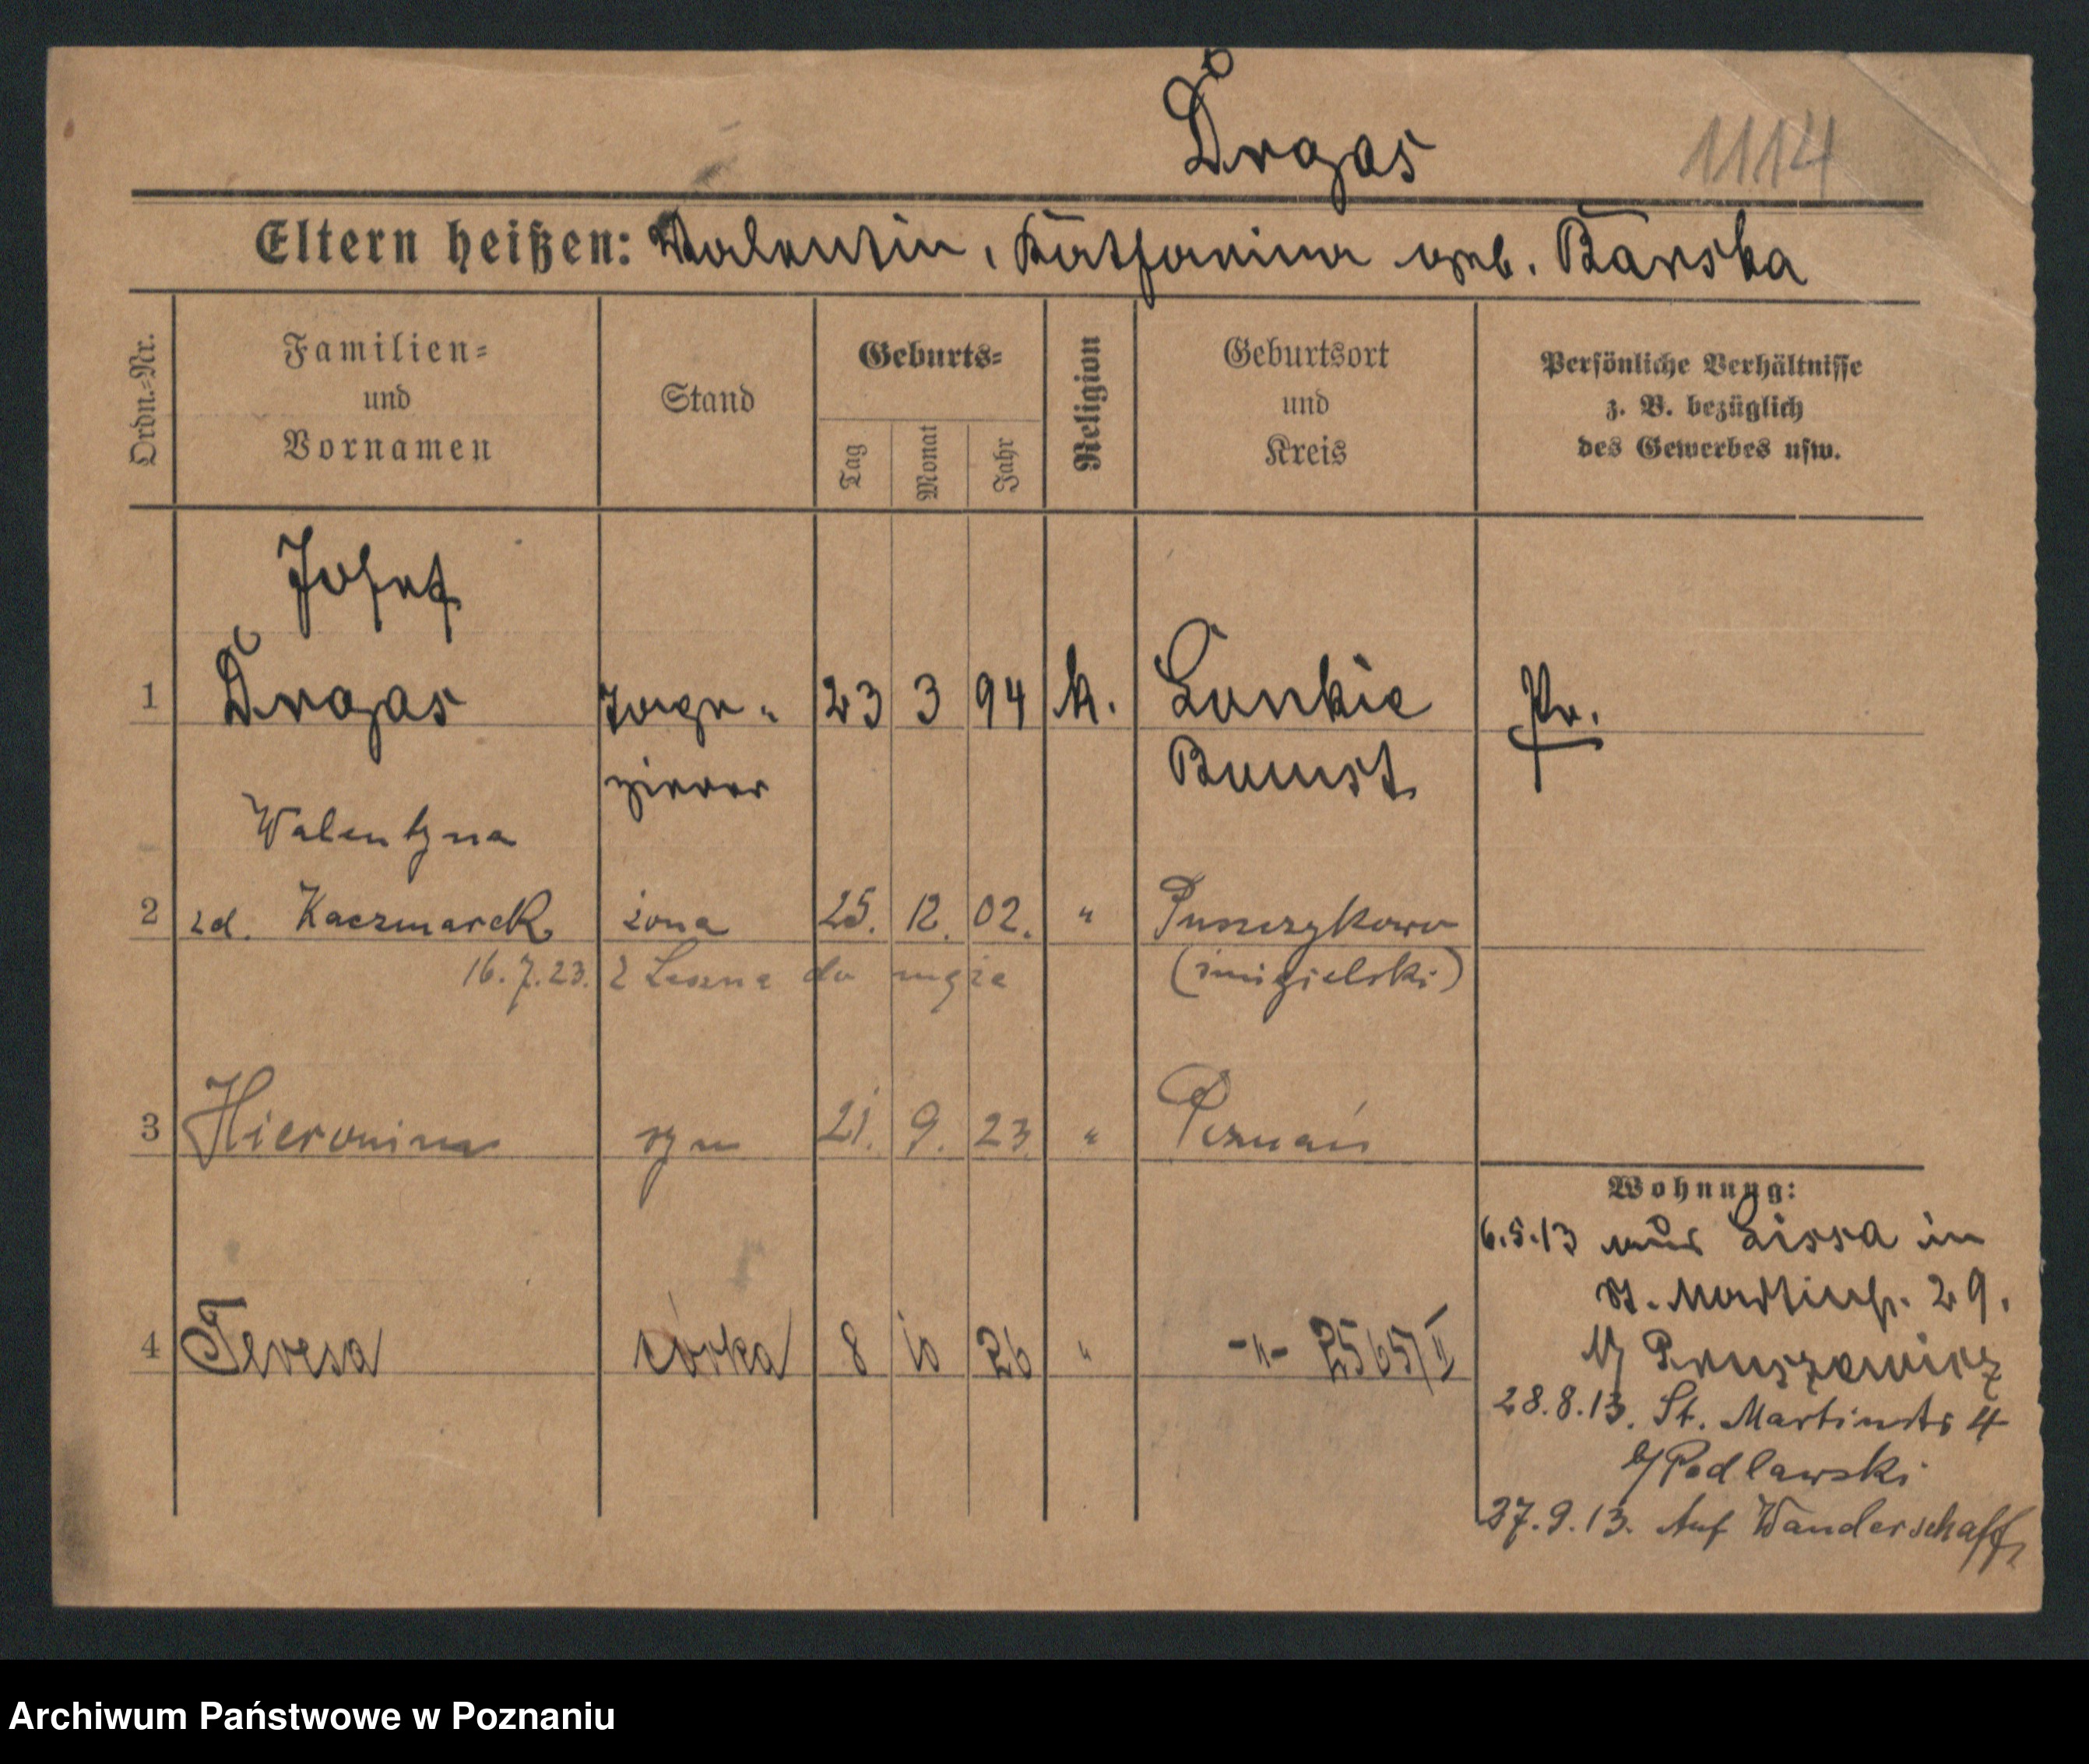 Dragas
1114
Eltern heißen: Valentin, Katharina geb. Barska
Ordn.-Nr.
Familien-
und
Vornamen
Stand
Geburts-
Tag
Monat
Jahr
Religion
Geburtsort
und
Kreis
Persönliche Verhältnisse
z. B. bezüglich
des Gewerbes usw.
Josef
1 Dragas Tape- 23 3 94 k. Lonkie Pr.
zierer Bomst
Walentyna
2 zd. Kaczmarek żona 25. 12. 02. " Puszczykowo
16.7.23. z Leszna do męża (śmigielski)
3 Hieronim syn 21. 9. 23. " Poznań
Wohnung:
6.5.13 aus Lissa in
St. Martinstr. 29.
b/ Pruszewicz
4 Teresa córka 8 10 26 " -"- 2565/II
28.8.13. St. Martinstr 4
b/ Podlawski
27.9.13. Auf Wanderschaft
Archiwum Państwowe w Poznaniu